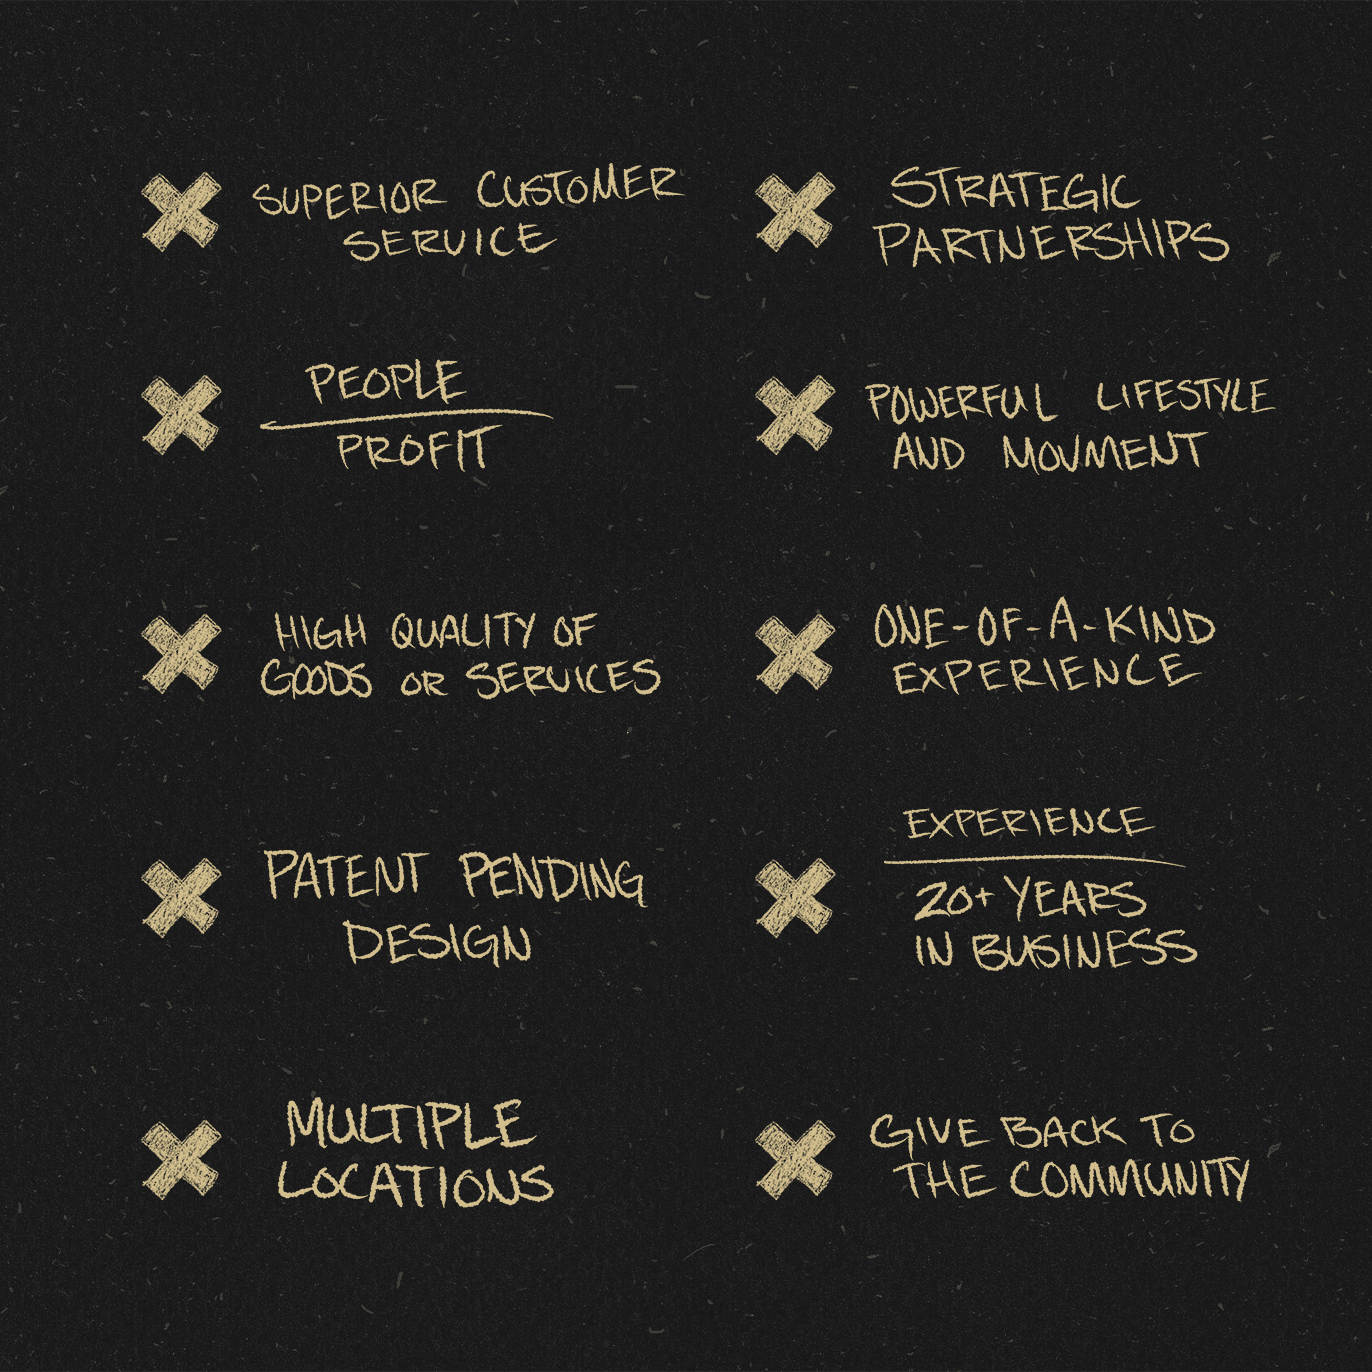 SUPERIOR CUSTOMER
SERVICE
PEOPLE
PROFIT
HIGH QUALITY OF
GOODS OR SERVICES
PATENT PENDING
DESIGN
MULTIPLE
LOCATIONS
STRATEGIC
PARTNERSHIPS
POWERFUL LIFESTYLE
AND MOVMENT
ONE-OF-A-KIND
EXPERIENCE
EXPERIENCE
20+ YEARS
IN BUSINESS
GIVE BACK TO
THE COMMUNITY